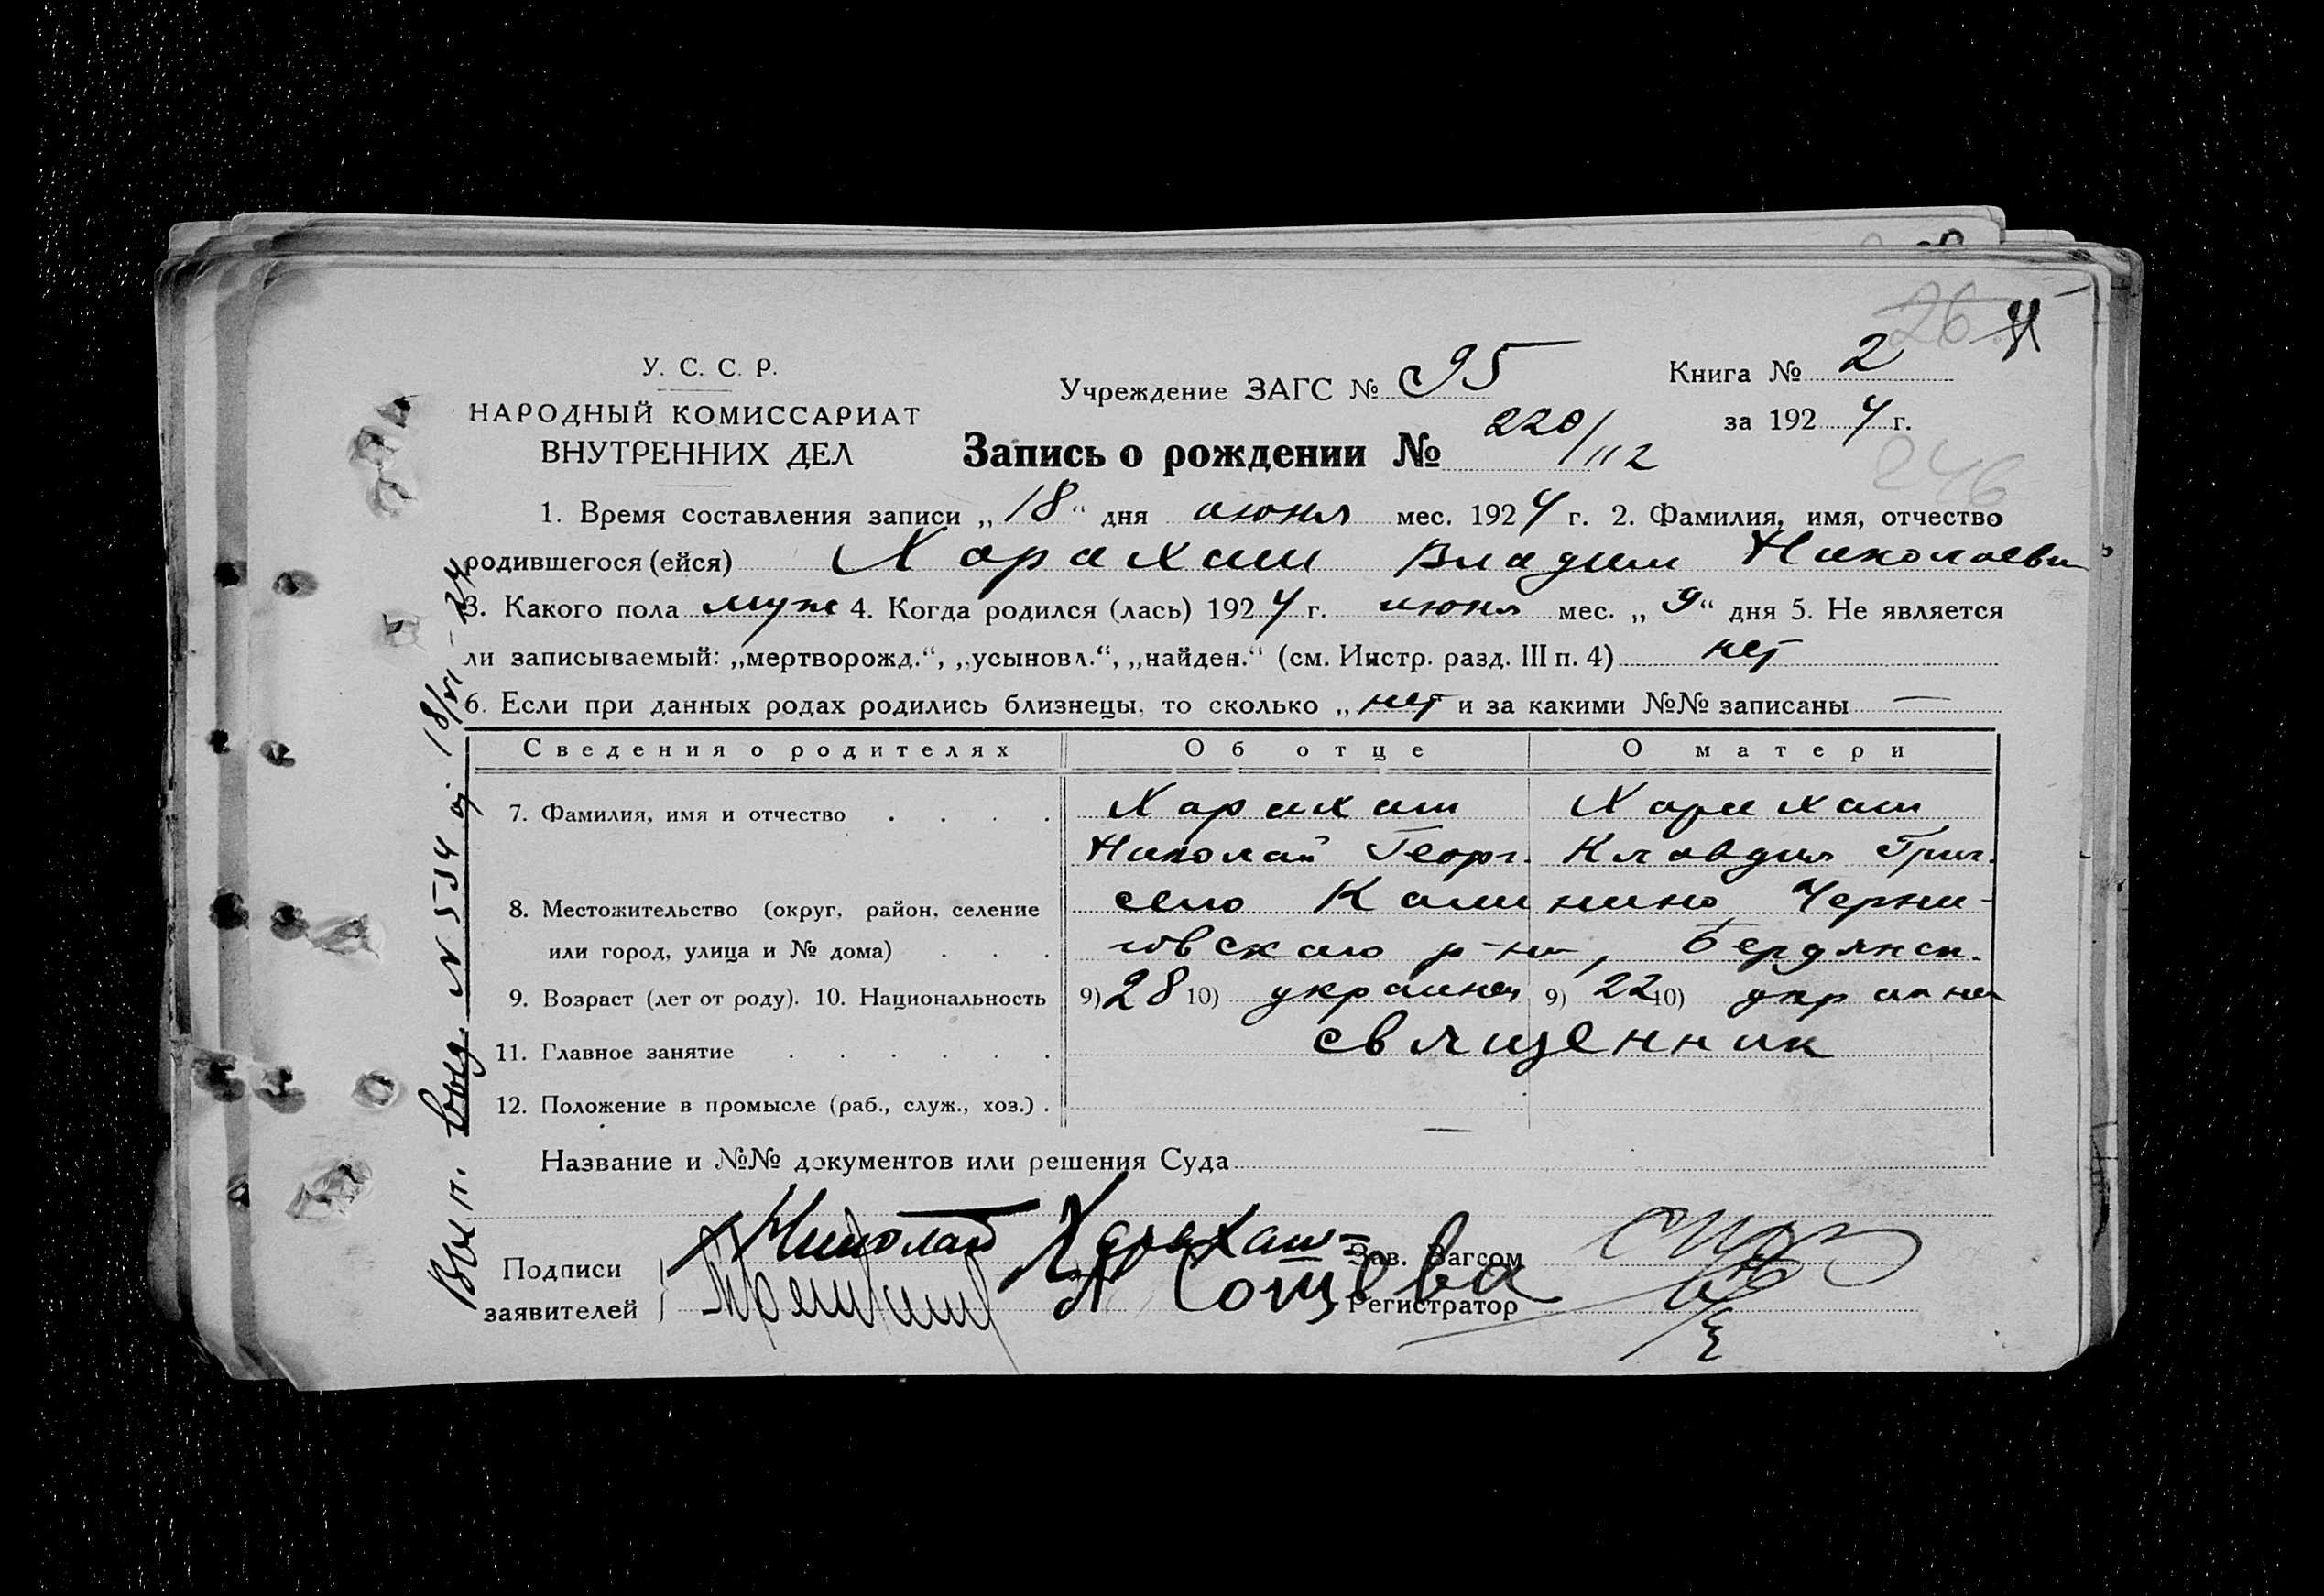 26
У. С. С. Р.
НАРОДНЫЙ КОМИССАРИАТ
ВНУТРЕННИХ ДЕЛ
Учреждение ЗАГС № 95
Книга № 2
за 1924 г.
Запись о рождении № 220/112
246
1. Время составления записи „18“ дня июня мес. 1924 г. 2. Фамилия, имя, отчество
родившегося (ейся) Харахаш Владим Николаеви
3. Какого пола муж 4. Когда родился (лась) 1924 г. июня мес. „9“ дня 5. Не является
ли записываемый: „мертворожд.“, „усыновл.“, „найден.“ (см. Инстр. разд. III п. 4) нет
6. Если при данных родах родились близнецы, то сколько „нет и за какими №№ записаны —
Сведения о родителях Об отце О матери
7. Фамилия, имя и отчество . . . . Харахаш Харахаш
Николай Георг. Клавдия Григ.
8. Местожительство (округ, район, селение село Калининo Черни-
или город, улица и № дома) . . . говского р-на, Бердянск.
9. Возраст (лет от роду). 10. Национальность 9) 28 10) украинец 9) 22 10) украин
11. Главное занятие . . . . . . священник
12. Положение в промысле (раб., служ., хоз.) .
Название и №№ документов или решения Суда —
Подписи
заявителей
Николай Харахаш
Зав. Загсом
Регистратор
N 534 от 18/VI-24